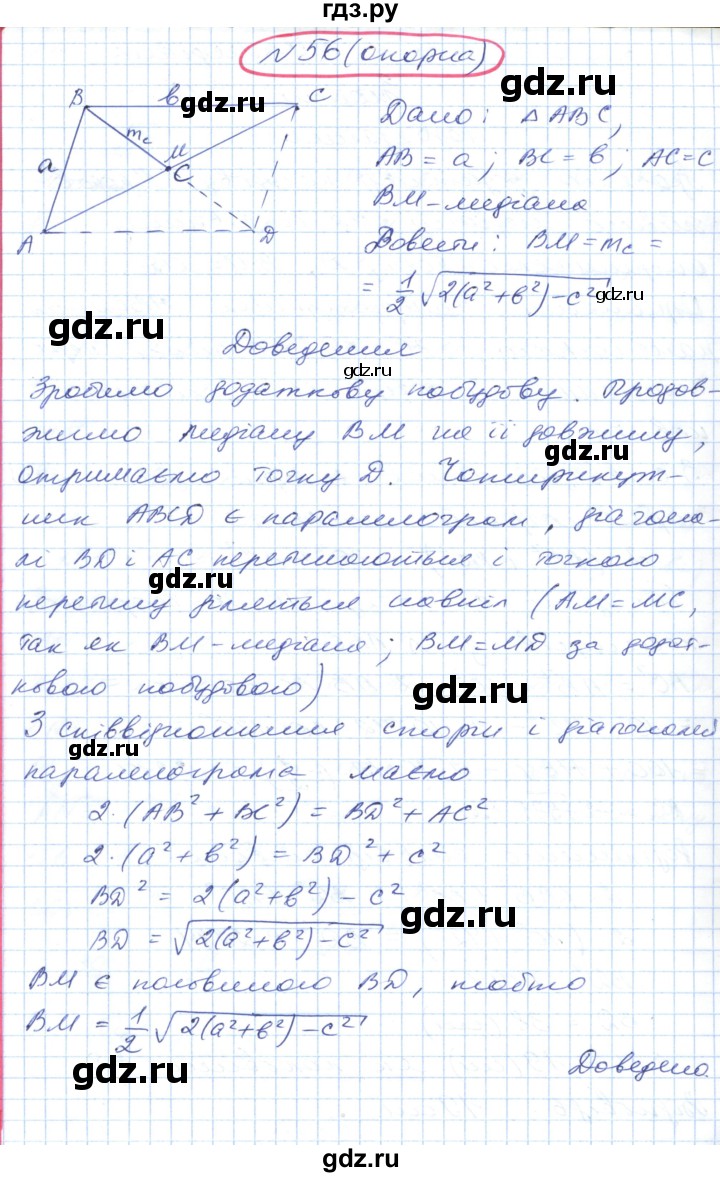 гдз.ру
№56 (опорна)
B в C
a mc M
C
A D
Дано: △ABC,
AB = a; BC = в; AC = c
BM – медіана
Довести: BM = mc =
= 1/2 √2(a²+в²)–c²
gdz.ru
gdz.ru
gdz.ru
gdz.ru
Доведення
gdz.ru
Зробимо додаткову побудову. Продов-
жимо медіану BM на її довжину,
отримаємо точку D. Чотирикут-
ник ABCD є паралелограм, діагона-
лі BD і AC перетинаються і точкою
gdz.ru
перетину діляться навпіл (AM = MC,
так як BM – медіана; BM = MD за додат-
ковою побудовою)
gdz.ru
З співвідношення сторін і діагоналей
gdz.ru
паралелограма маємо
2·(AB² + BC²) = BD² + AC²
2·(a² + в²) = BD² + c²
BD² = 2(a²+в²) – c²
gdz.ru
BD = √2(a²+в²)–c²
BM є половиною BD, тобто
BM = 1/2 √2(a²+в²)–c²
gdz.ru
Доведено.
gdz.ru